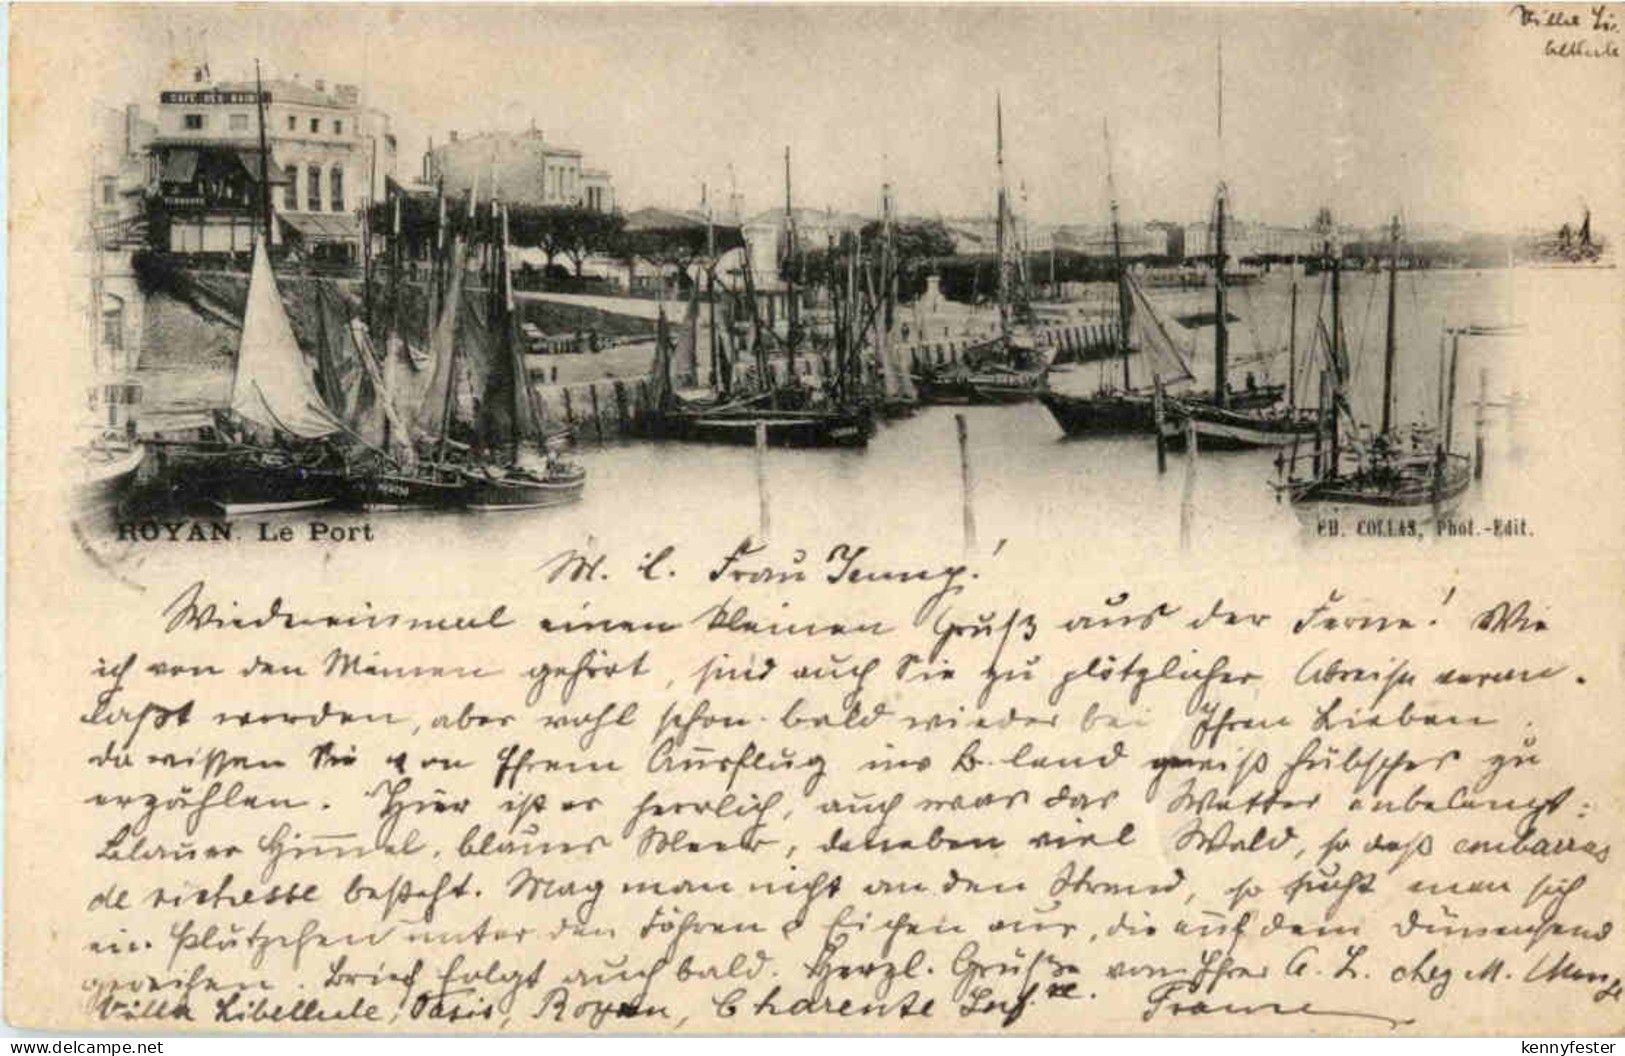 Villa Li-
bellule
CAFÉ DES BAINS
ROYAN. Le Port
CH. COLLAS, Phot.-Edit.
M. l. Frau Jenny!
Wiedereinmal einen kleinen Gruß aus der Ferne! Wie
ich von den Meinen gehört, sind auch Sie zu plötzlicher Abreise veran-
laßt worden, aber wohl schon bald wieder bei Ihren Lieben.
da wissen Sie von Ihrem Ausflug ins B. land gewiß hübsches zu
erzählen. Hier ist es herrlich, auch was das Wetter anbelangt:
blauer Himmel, blaues Meer, daneben viel Wald, so daß embarras
de richesse besteht. Mag man nicht an den Strand, so sucht man sich
ein Plätzchen unter den Föhren & Eichen aus, die auf dem Dünensand
gedeihen. Brief folgt auch bald. Herzl. Grüße von Ihrer A. L. chez M.
Villa Libellule, Oasis, Royan, Charente Infre. France
kennyfester